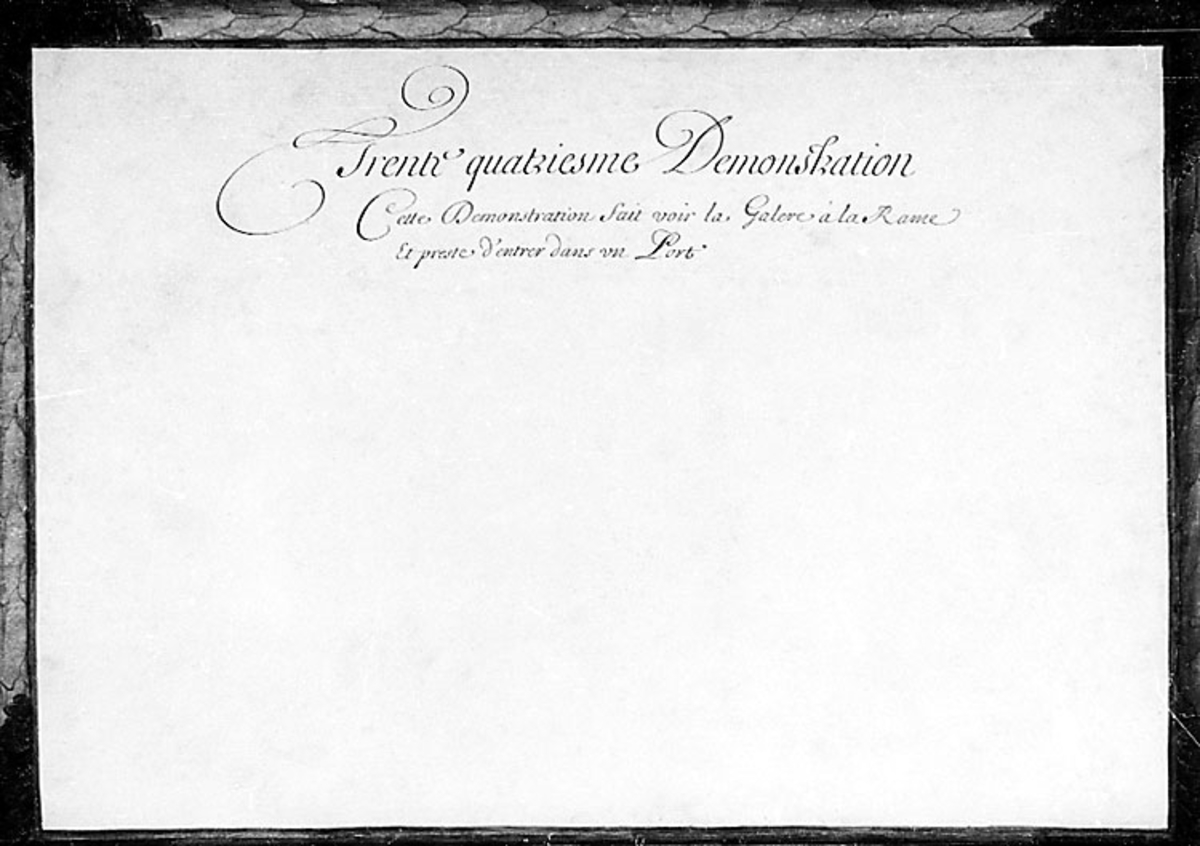 Trente quatriesme Demonstration
Cette Demonstration fait voir la Galere à la Rame
Et preste d'entrer dans vn Port